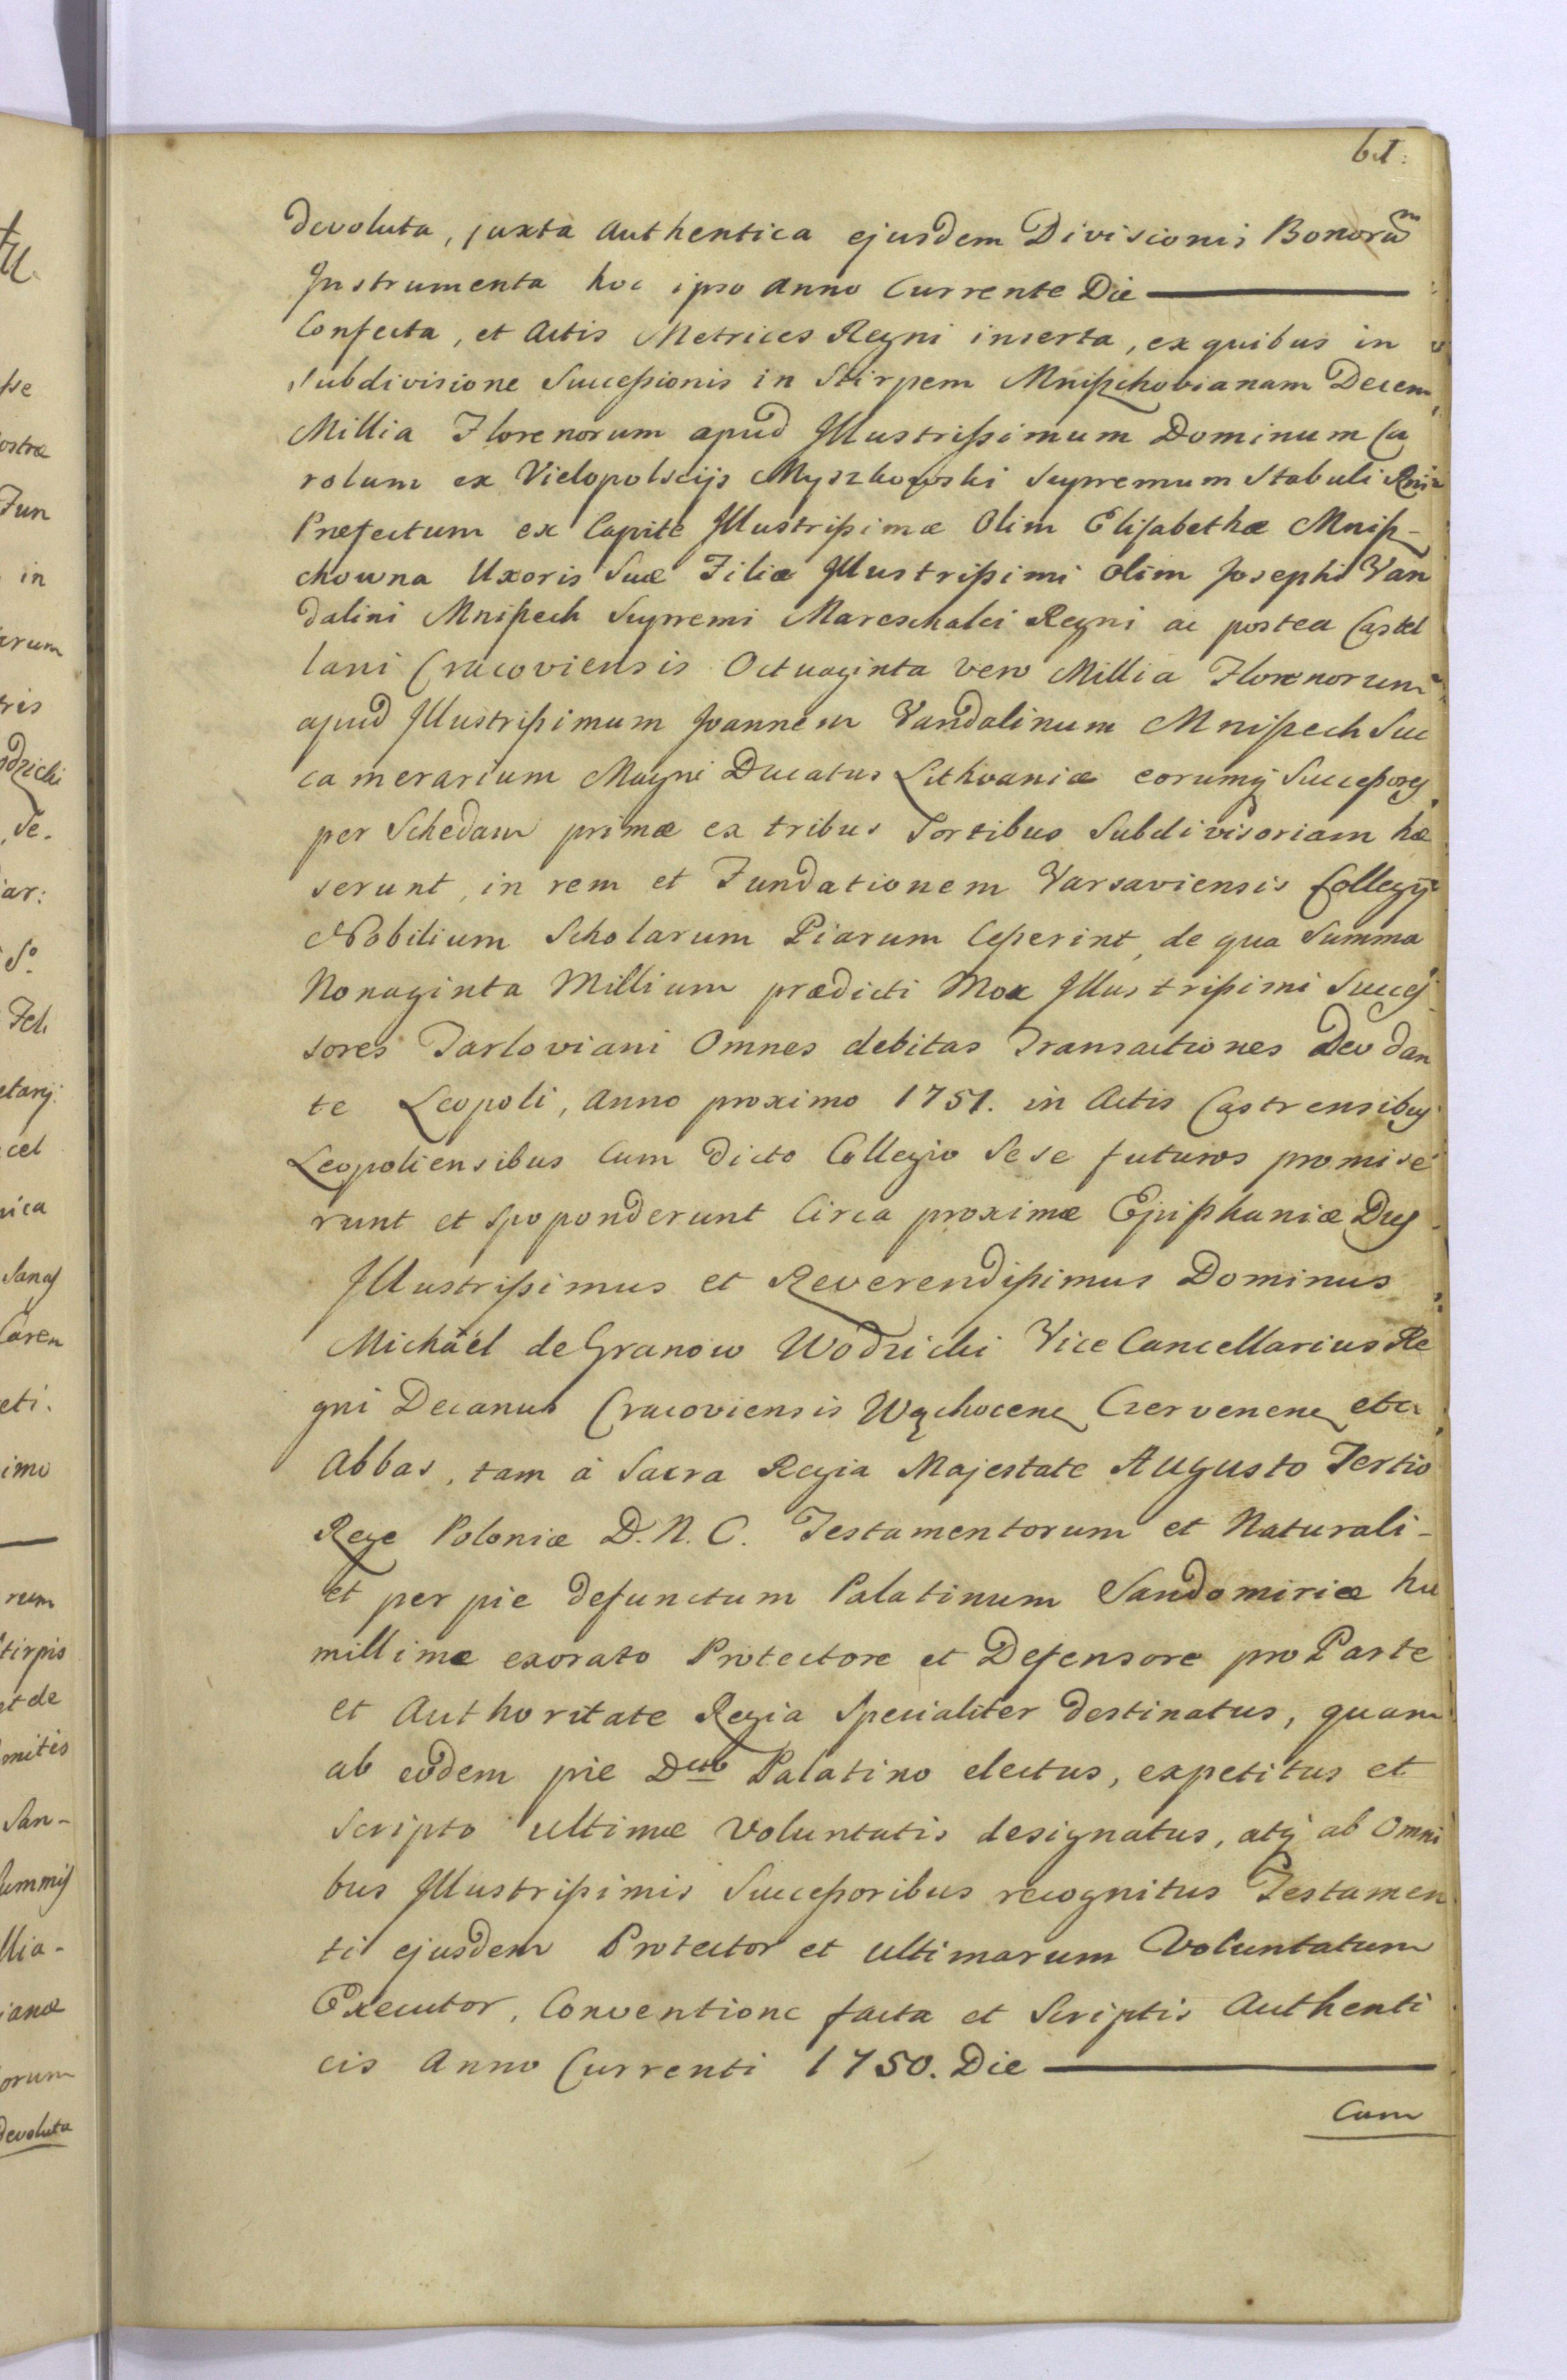 61.
devoluta, juxta Authentica ejusdem Divisionis Bonorum
Instrumenta hoc ipso Anno Currente Die
Confecta, et Actis Metrices Regni inserta, ex quibus in
subdivisione Successionis in Stirpem Mniszchovianam Decem
Millia Florenorum apud Illustrissimum Dominum Ca
rolum ex Vielopolscijs Myszkowski Supremum Stabuli Rni
Præfectum ex Capite Illustrissimæ Olim Elisabethæ Mnisz-
chowna Uxoris Suæ Filiæ Illustrissimi olim Josephi Van
dalini Mniszech Supremi Mareschalci Regni ac postea Castel
lani Cracoviensis Octuaginta vero Millia Florenorum
apud Illustrissimum Joannem Vandalinum Mniszech Suc
camerarium Magni Ducatus Lithvaniæ eorumq Successores
per Schedam primæ ex tribus Sortibus Subdivisoriam hæ
serunt, in rem et Fundationem Varsaviensis Collegij
Nobilium Scholarum Piarum Cesserint, de qua Summa
Nonaginta Millium prædicti Mox Illustrissimi Succes
sores Tarloviani Omnes debitas Transactiones Deo dan
te Leopoli, Anno proximo 1751. in Actis Castrensibus
Leopoliensibus Cum dicto Collegio Sese futuros promise
runt et spoponderunt Circa proximæ Epiphaniæ Dies
Illustrissimus et Reverendissimus Dominus
Michaël de Granow Wodzicki Vice Cancellarius Re
gni Decanus Cracoviensis Wąchocen Czervenen etc
Abbas, tam à Sacra Regia Majestate Augusto Tertio
Rege Poloniæ D. N. C. Testamentorum et Naturali-
et per pie defunctum Palatinum Sandomiriæ hu
millime exorato Protectore et Defensore pro Parte
et Authoritate Regia Specialiter destinatus, quam
ab eodem pie Dcto Palatino electus, expetitus et
Scripto ultimæ Voluntatis designatus, atq ab Omni
bus Illustrissimis Successoribus recognitus Testamen
ti ejusdem Protector et ultimarum Voluntatum
Executor, Conventione facta et Scriptis Authenti
cis Anno Currenti 1750. Die
Cum